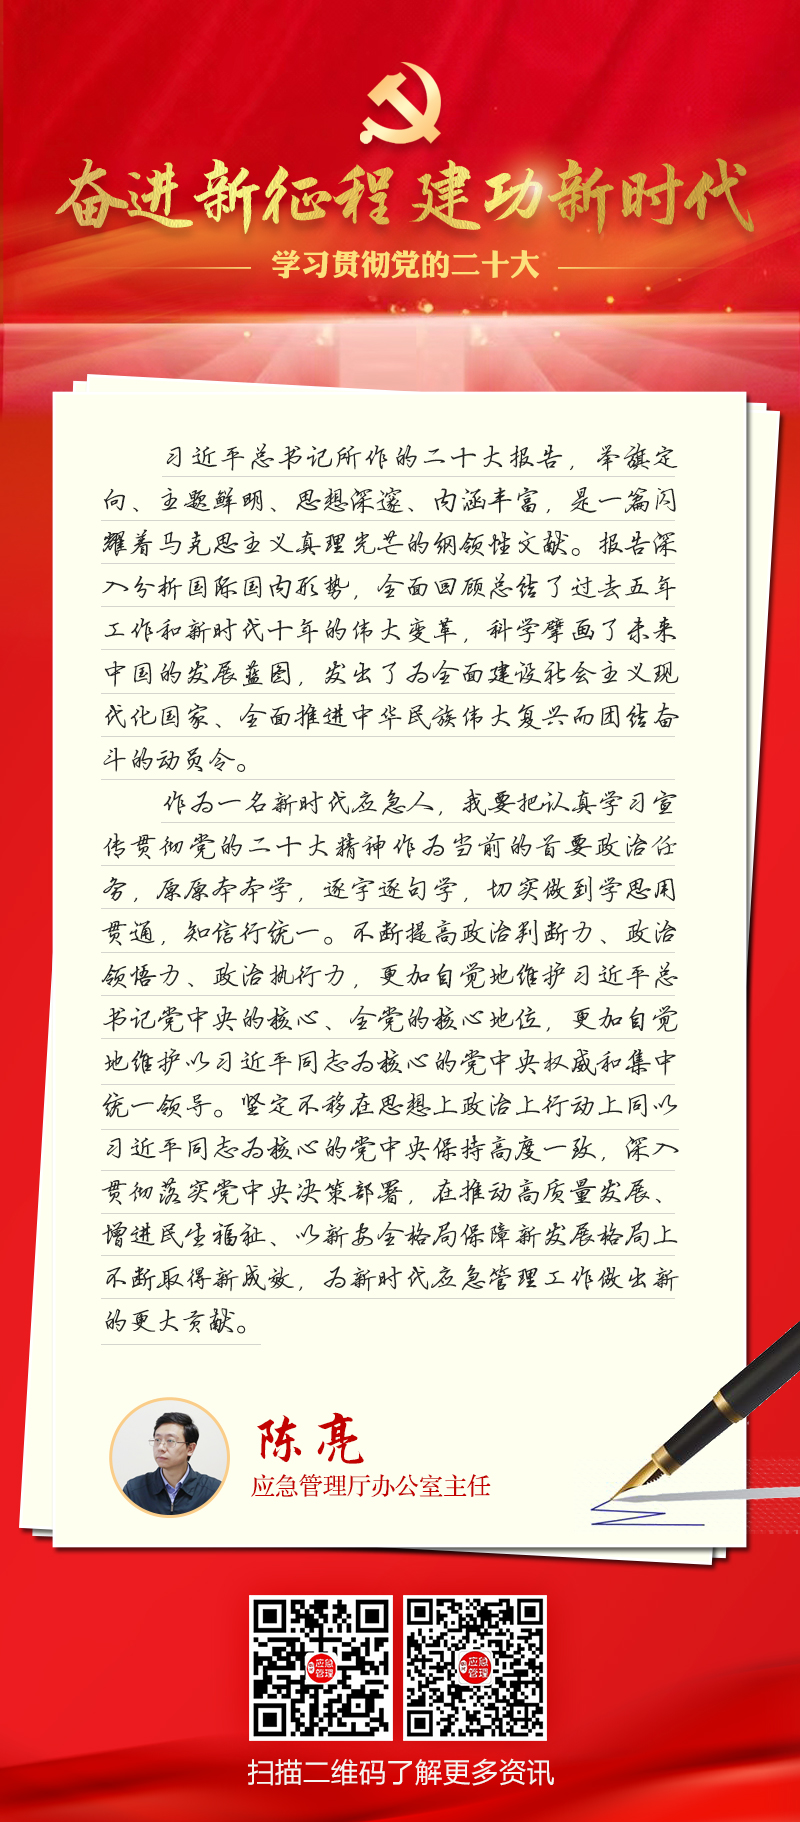 奋进新征程 建功新时代
学习贯彻党的二十大
习近平总书记所作的二十大报告，举旗定
向、主题鲜明、思想深邃、内涵丰富，是一篇闪
耀着马克思主义真理光芒的纲领性文献。报告深
入分析国际国内形势，全面回顾总结了过去五年
工作和新时代十年的伟大变革，科学擘画了未来
中国的发展蓝图，发出了为全面建设社会主义现
代化国家、全面推进中华民族伟大复兴而团结奋
斗的动员令。
作为一名新时代应急人，我要把认真学习宣
传贯彻党的二十大精神作为当前的首要政治任
务，原原本本学，逐字逐句学，切实做到学思用
贯通，知信行统一。不断提高政治判断力、政治
领悟力、政治执行力，更加自觉地维护习近平总
书记党中央的核心、全党的核心地位，更加自觉
地维护以习近平同志为核心的党中央权威和集中
统一领导。坚定不移在思想上政治上行动上同以
习近平同志为核心的党中央保持高度一致，深入
贯彻落实党中央决策部署，在推动高质量发展、
增进民生福祉、以新安全格局保障新发展格局上
不断取得新成效，为新时代应急管理工作做出新
的更大贡献。
陈亮
应急管理厅办公室主任
应急
管理
应急
管理
扫描二维码了解更多资讯